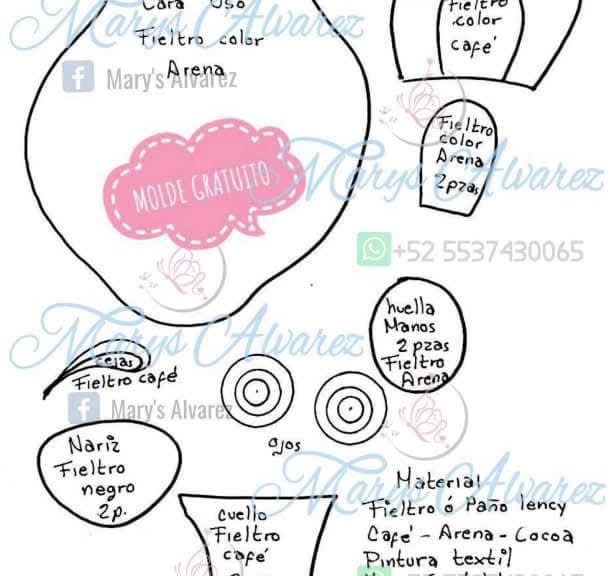 Cara Oso
Fieltro color
Arena
Fieltro
color
café
Marys Alvarez
Mary's Alvarez
MOLDE GRATUITO
Fieltro
color
Arena
2pzas
Marys Alvarez
+52 5537430065
huella
Manos
2 pzas
Fieltro
Arena
Marys Alvarez
cejas
Fieltro café
Mary's Alvarez
ojos
Nariz
Fieltro
negro
2p.
Marys Alvarez
cuello
Fieltro
café
Material
Fieltro ó Paño lency
Café - Arena - Cocoa
Pintura textil